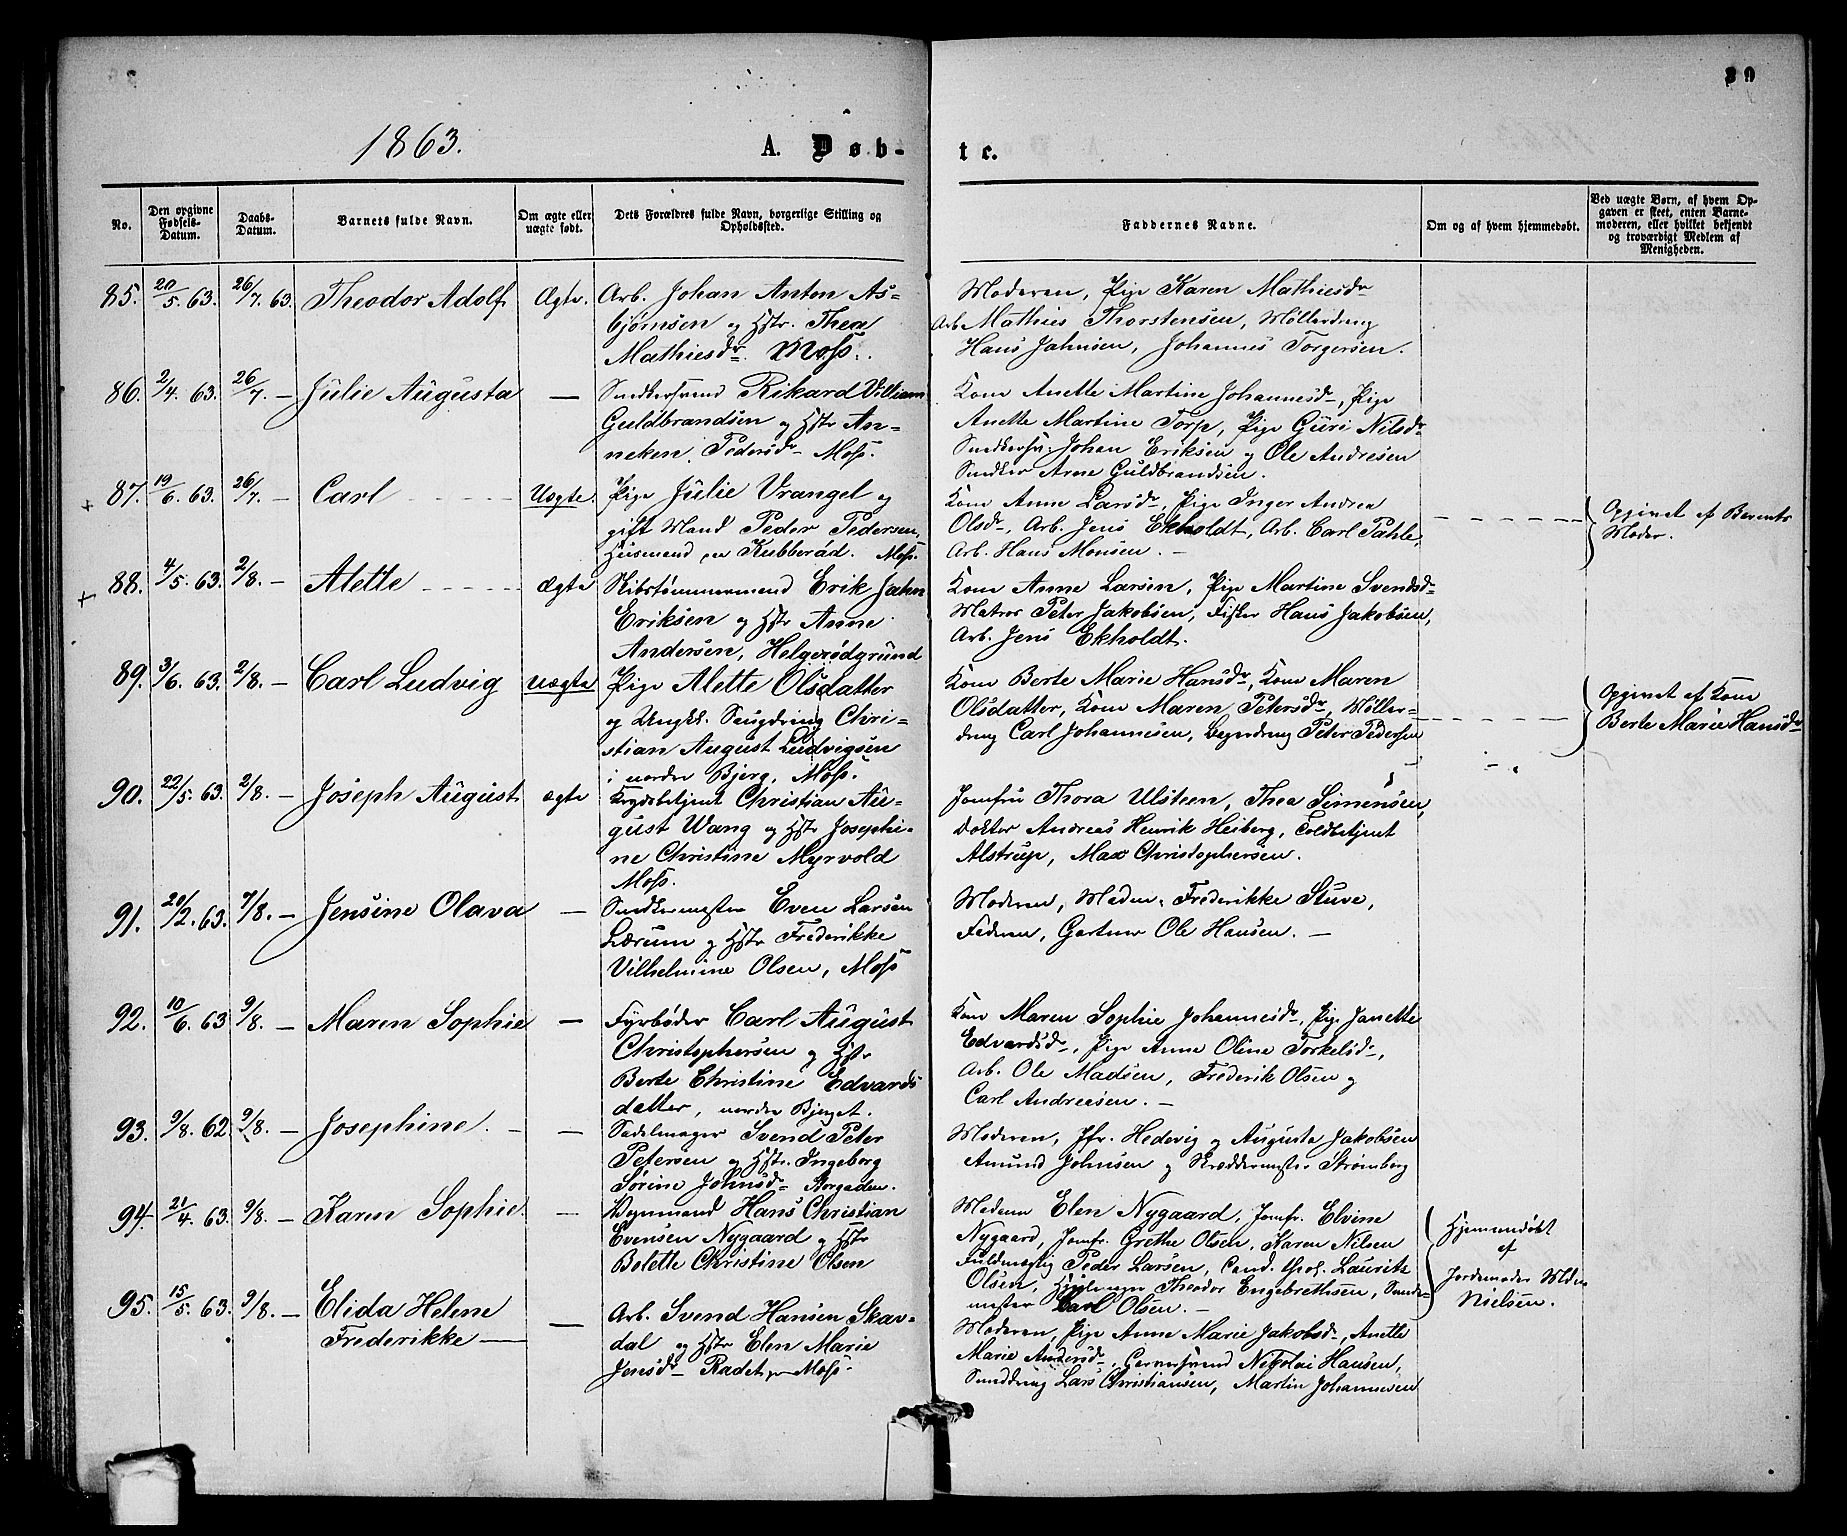 39
1863.
A. Døb-
te.
No.
Den opgivne Fødsels-Datum.
Daabs-Datum.
Barnets fulde Navn.
Om ægte eller uægte født.
Dets Forældres fulde Navn, borgerlige Stilling og Opholdssted.
Faddernes Navne.
Om og af hvem hjemmedøbt.
Ved uægte Børn, af hvem Opgaven er skeet, enten Barnemoderen, eller hvilket bekjendt og troværdigt Medlem af Menigheden.
85. 20/5. 63. 26/7. 63. Theodor Adolf. Ægte.
Arb. Johan Anton As-
bjørnsen og Hstr. Thea
Mathiesdr. Moss.
Moderen, Pige Karen Mathiesdr
Arb. Mathies Thorstensen, Møllerdreng
Hans Jahnsen, Johannes Torgersen.
86. 2/4. 63. 26/7. — Julie Augusta —
Snedkersvend Rikard Villiam
Guldbrandsen og Hstr An-
neken Pedersdr Moss.
Kone Anette Martine Johannesdr, Pige
Anette Martine Torp, Pige Guri Nilsdr
Snedkersv. Johan Eriksen og Ole Andresen
Snedker Arne Guldbrandsen.
+ 87. 19/6. 63. 26/7. — Carl Uægte.
Pige Julie Vrangel og
gift Mand Peder Pedersen,
Huusmand Kubberød. Moss.
Kone Anne Larsdr, Pige Inger Andrea
Olsdr, Arb. Jens Ekholdt, Arb. Carl Pahle,
Arb. Hans Monsen. —
Opgivet af Barnets
Moder.
+ 88. 4/5. 63. 2/8. — Alette Ægte
Skibstømmermand Erik Jahn
Eriksen og Hstr Anne
Andersen, Helgerødgrund
Kone Anne Larsen, Pige Martine Svendsd-
Matros Peter Jakobsen, Fisker Hans Jakobsen,
Arb. Jens Ekholdt.
89. 3/6. 63. 2/8. — Carl Ludvig Uægte
Pige Alette Olsdatter
og Ungk. Saugdreng Chri-
stian August Ludvigsen
i nordre Bjerg, Moss.
Kone Berte Marie Hansdr, Kone Maren
Olsdatter, Kone Maren Petersdr, Møller-
dreng Carl Johannesen, Peter Pedersen
Opgivet af Kone
Berte Marie Hansdr
90. 22/5. 63. 2/8. — Joseph August ægte
Krydsbetjent Christian Au-
gust Wang og Hstr Josephi-
ne Christine Myrvold
Moss.
Jomfru Thora Ulsteen, Thea Simensen,
Doktor Andreas Henrik Heiberg, Toldbetjent
Alstrup, Max Christophersen.
91. 20/2. 63. 7/8. — Jensine Olava —
Snedkermester Even Larsen
Lærum og Hstr Frederikke
Vilhelmine Olsen, Moss
Moderen, Madm. Frederikke Stuve,
Faderen, Gartner Ole Hansen. —
92. 10/6. 63 9/8. — Maren Sophie —
Fyrbøder Carl August
Christophersen og Hstr
Berte Christine Edvards
datter, nordre Bjerget.
Kone Maren Sophie Johannesdr, Pige Janette
Edvardsdr, Pige Anne Oline Torkelsdr,
Arb. Ole Madsen, Frederik Olsen og
Carl Andreasen. —
93. 9/8. 62. 9/8. — Josephine. —
Sadelmager Svend Peter
Petersen og Hstr. Ingeborg
Sørine Johnsdr Storgaden.
Moderen, Jfr. Hedevig og Augusta Jakobsen
Amund Johnsen og Skræddermester Strømberg
94. 21/4. 63. 9/8. — Karen Sophie —
Vognmand Hans Christian
Evensen Nygaard og Hstr
Bolette Christine Olsen
Madam Elen Nygaard, Jomfr. Elvine
Nygaard, Jomfr. Grethe Olsen, Karen Nilsen
Fuldmægtig Peder Larsen, Cand. theol. Lauritz
Olsen, Theodor Engebrethsen,
mester Carl Olsen. —
Hjemmedøbt
af
Jordemoder Mdm
Nielsen.
95. 15/5. 63. 9/8. — Elida Helene
Frederikke —
Arb. Svend Hansen Skav-
dal og Hstr Elen Marie
Jensdr Radet pr Moss.
Moderen, Pige Anne Marie Jakobsdr, Anette
Marie Andersdr, Garversvend Nikolai Hansen,
Smeddreng Lars Christiansen, Martin Johannesen